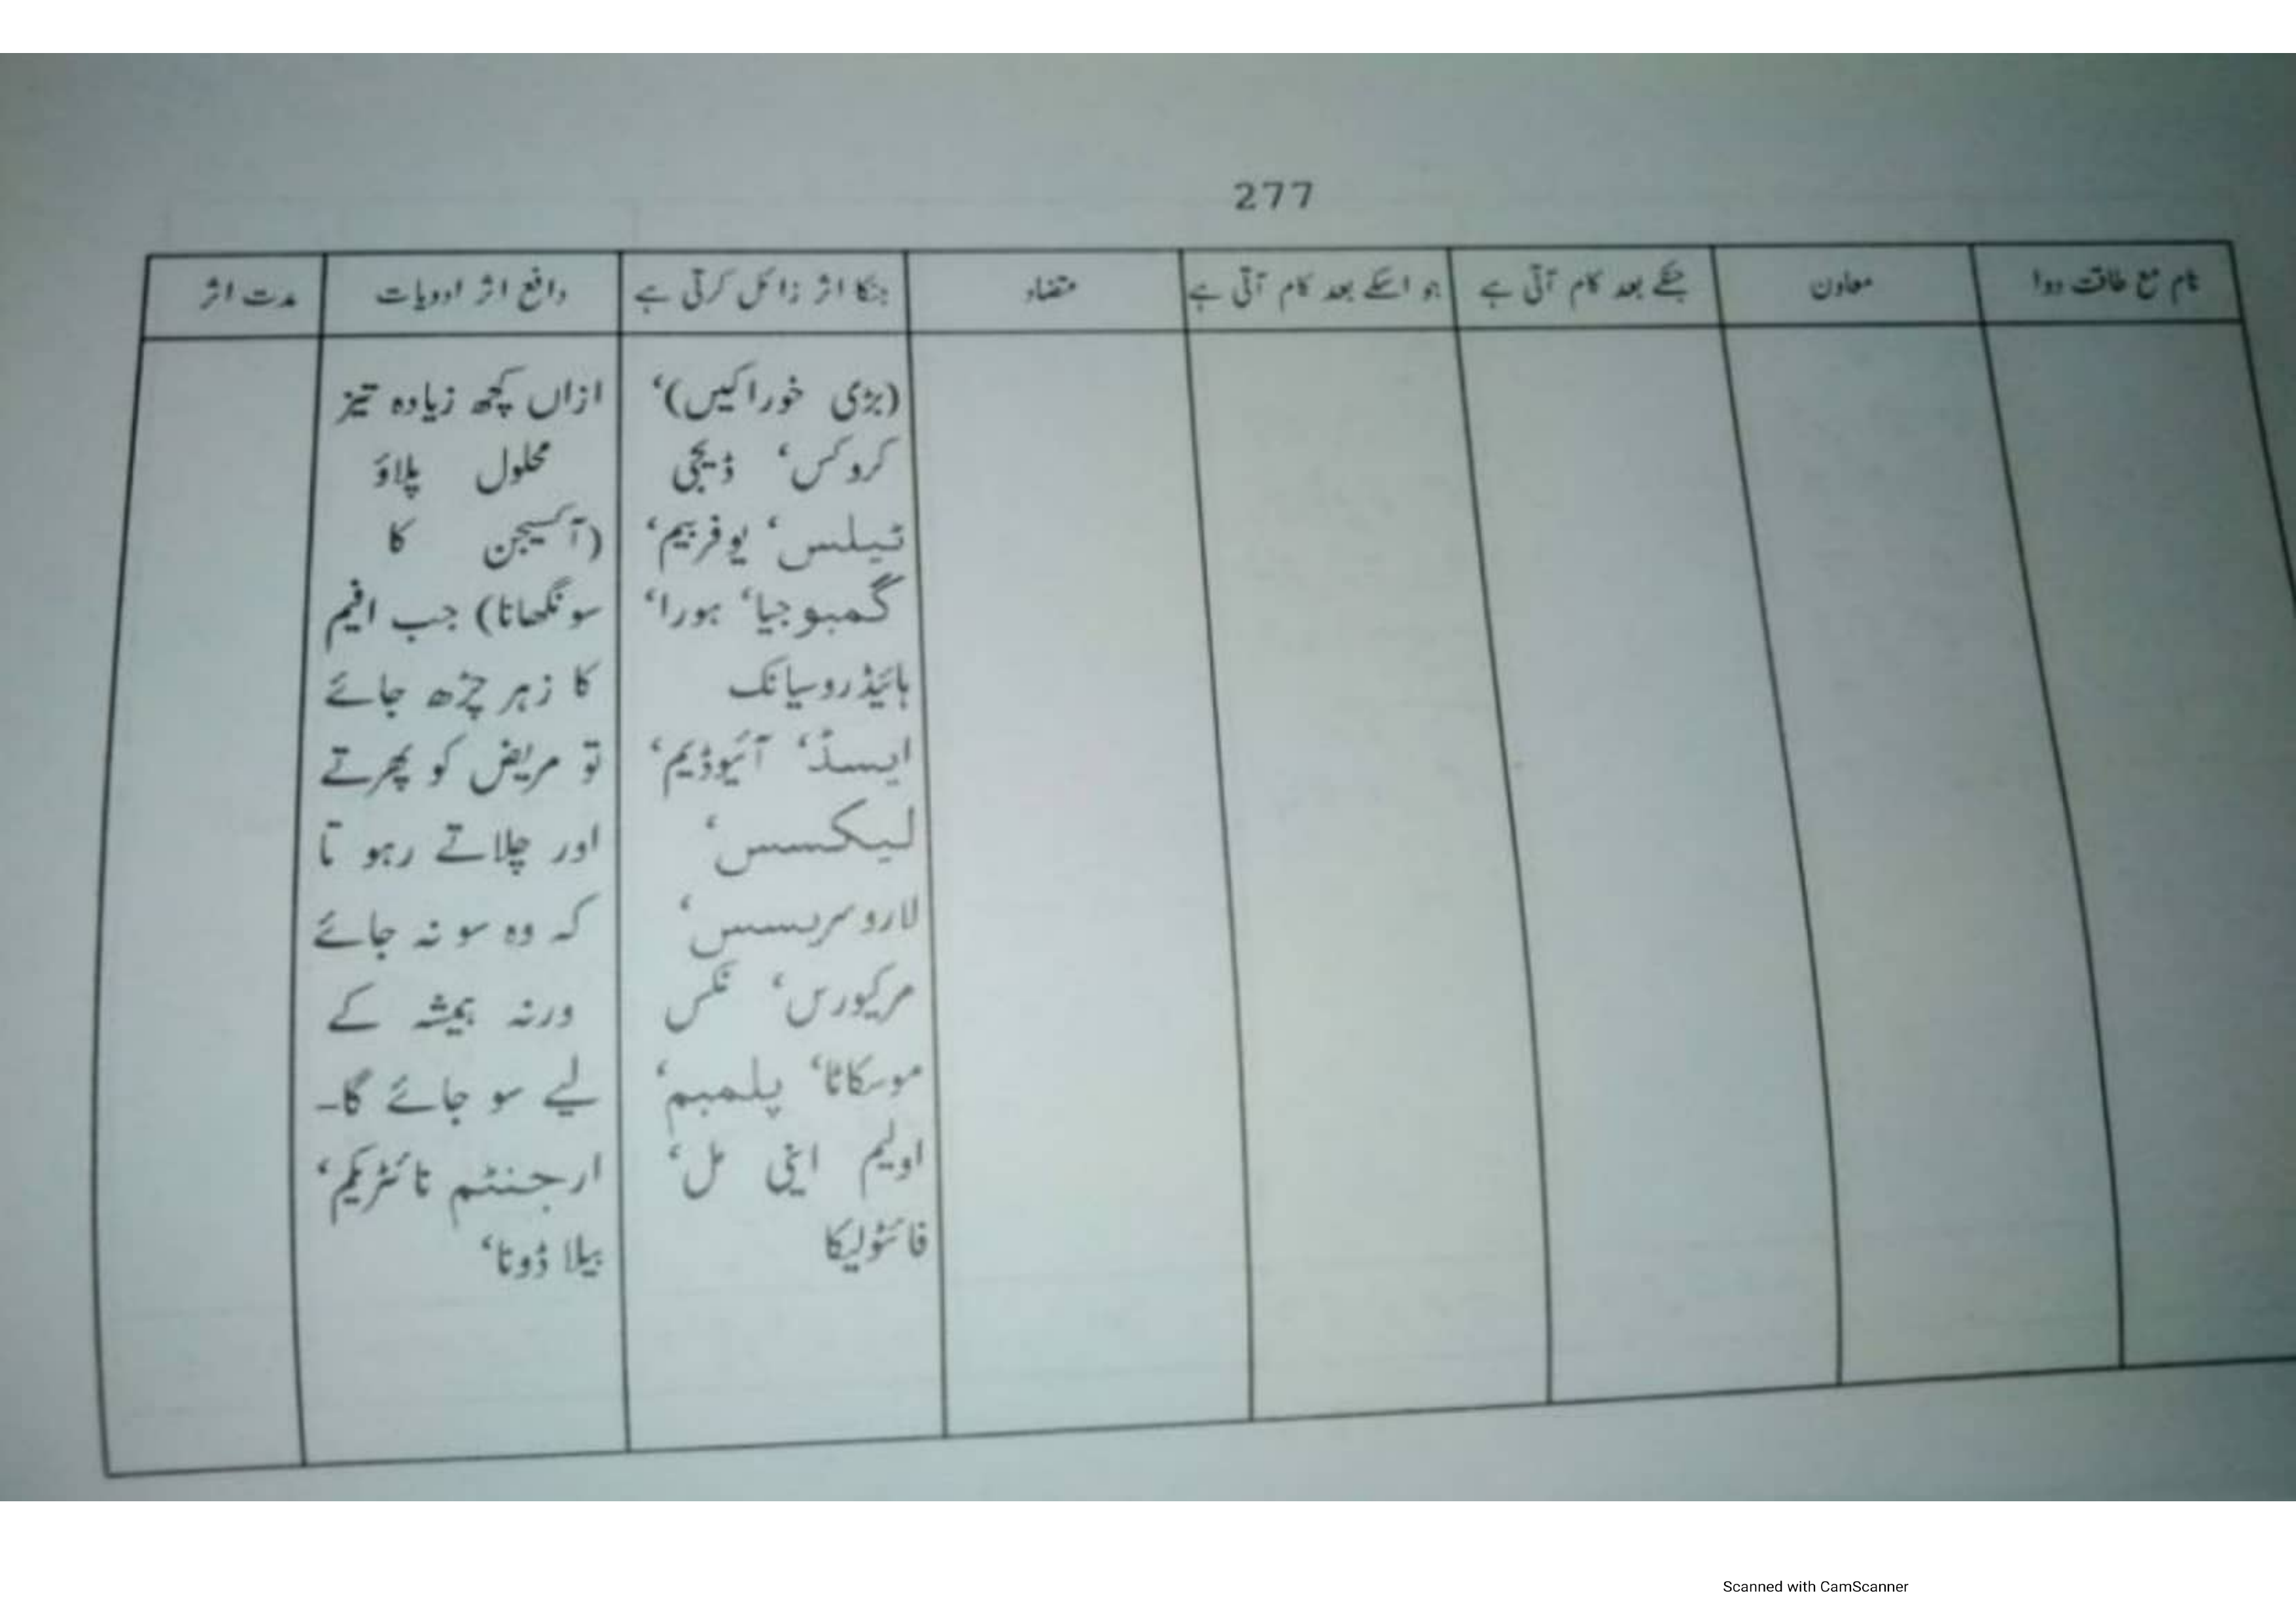 277
نام مع طاقت دوا
معاون
جنکے بعد کام آتی ہے
جو اسکے بعد کام آتی ہے
متضاد
جنکا اثر زائل کرتی ہے
دافع اثر ادویات
مدت اثر
(بڑی خوراکیں)‘
کروکس‘ ڈیجی
ٹیلس‘ یوفربیم‘
گمبوجیا‘ ہورا‘
ہائیڈروسیانک
ایسڈ‘ آئیوڈیم‘
لیکسس‘
لاروسریسس‘
مرکیورس‘ نکس
موسکاٹا‘ پلمبم‘
اولیم اینی مل‘
فائٹولیکا
ازاں کچھ زیادہ تیز
محلول پلاؤ
(آکسیجن کا
سونگھانا) جب افیم
کا زہر چڑھ جائے
تو مریض کو پھرتے
اور چلاتے رہو تا
کہ وہ سو نہ جائے
ورنہ ہمیشہ کے
لیے سو جائے گا۔
ارجنٹم نائٹریکم‘
بیلا ڈونا‘
Scanned with CamScanner